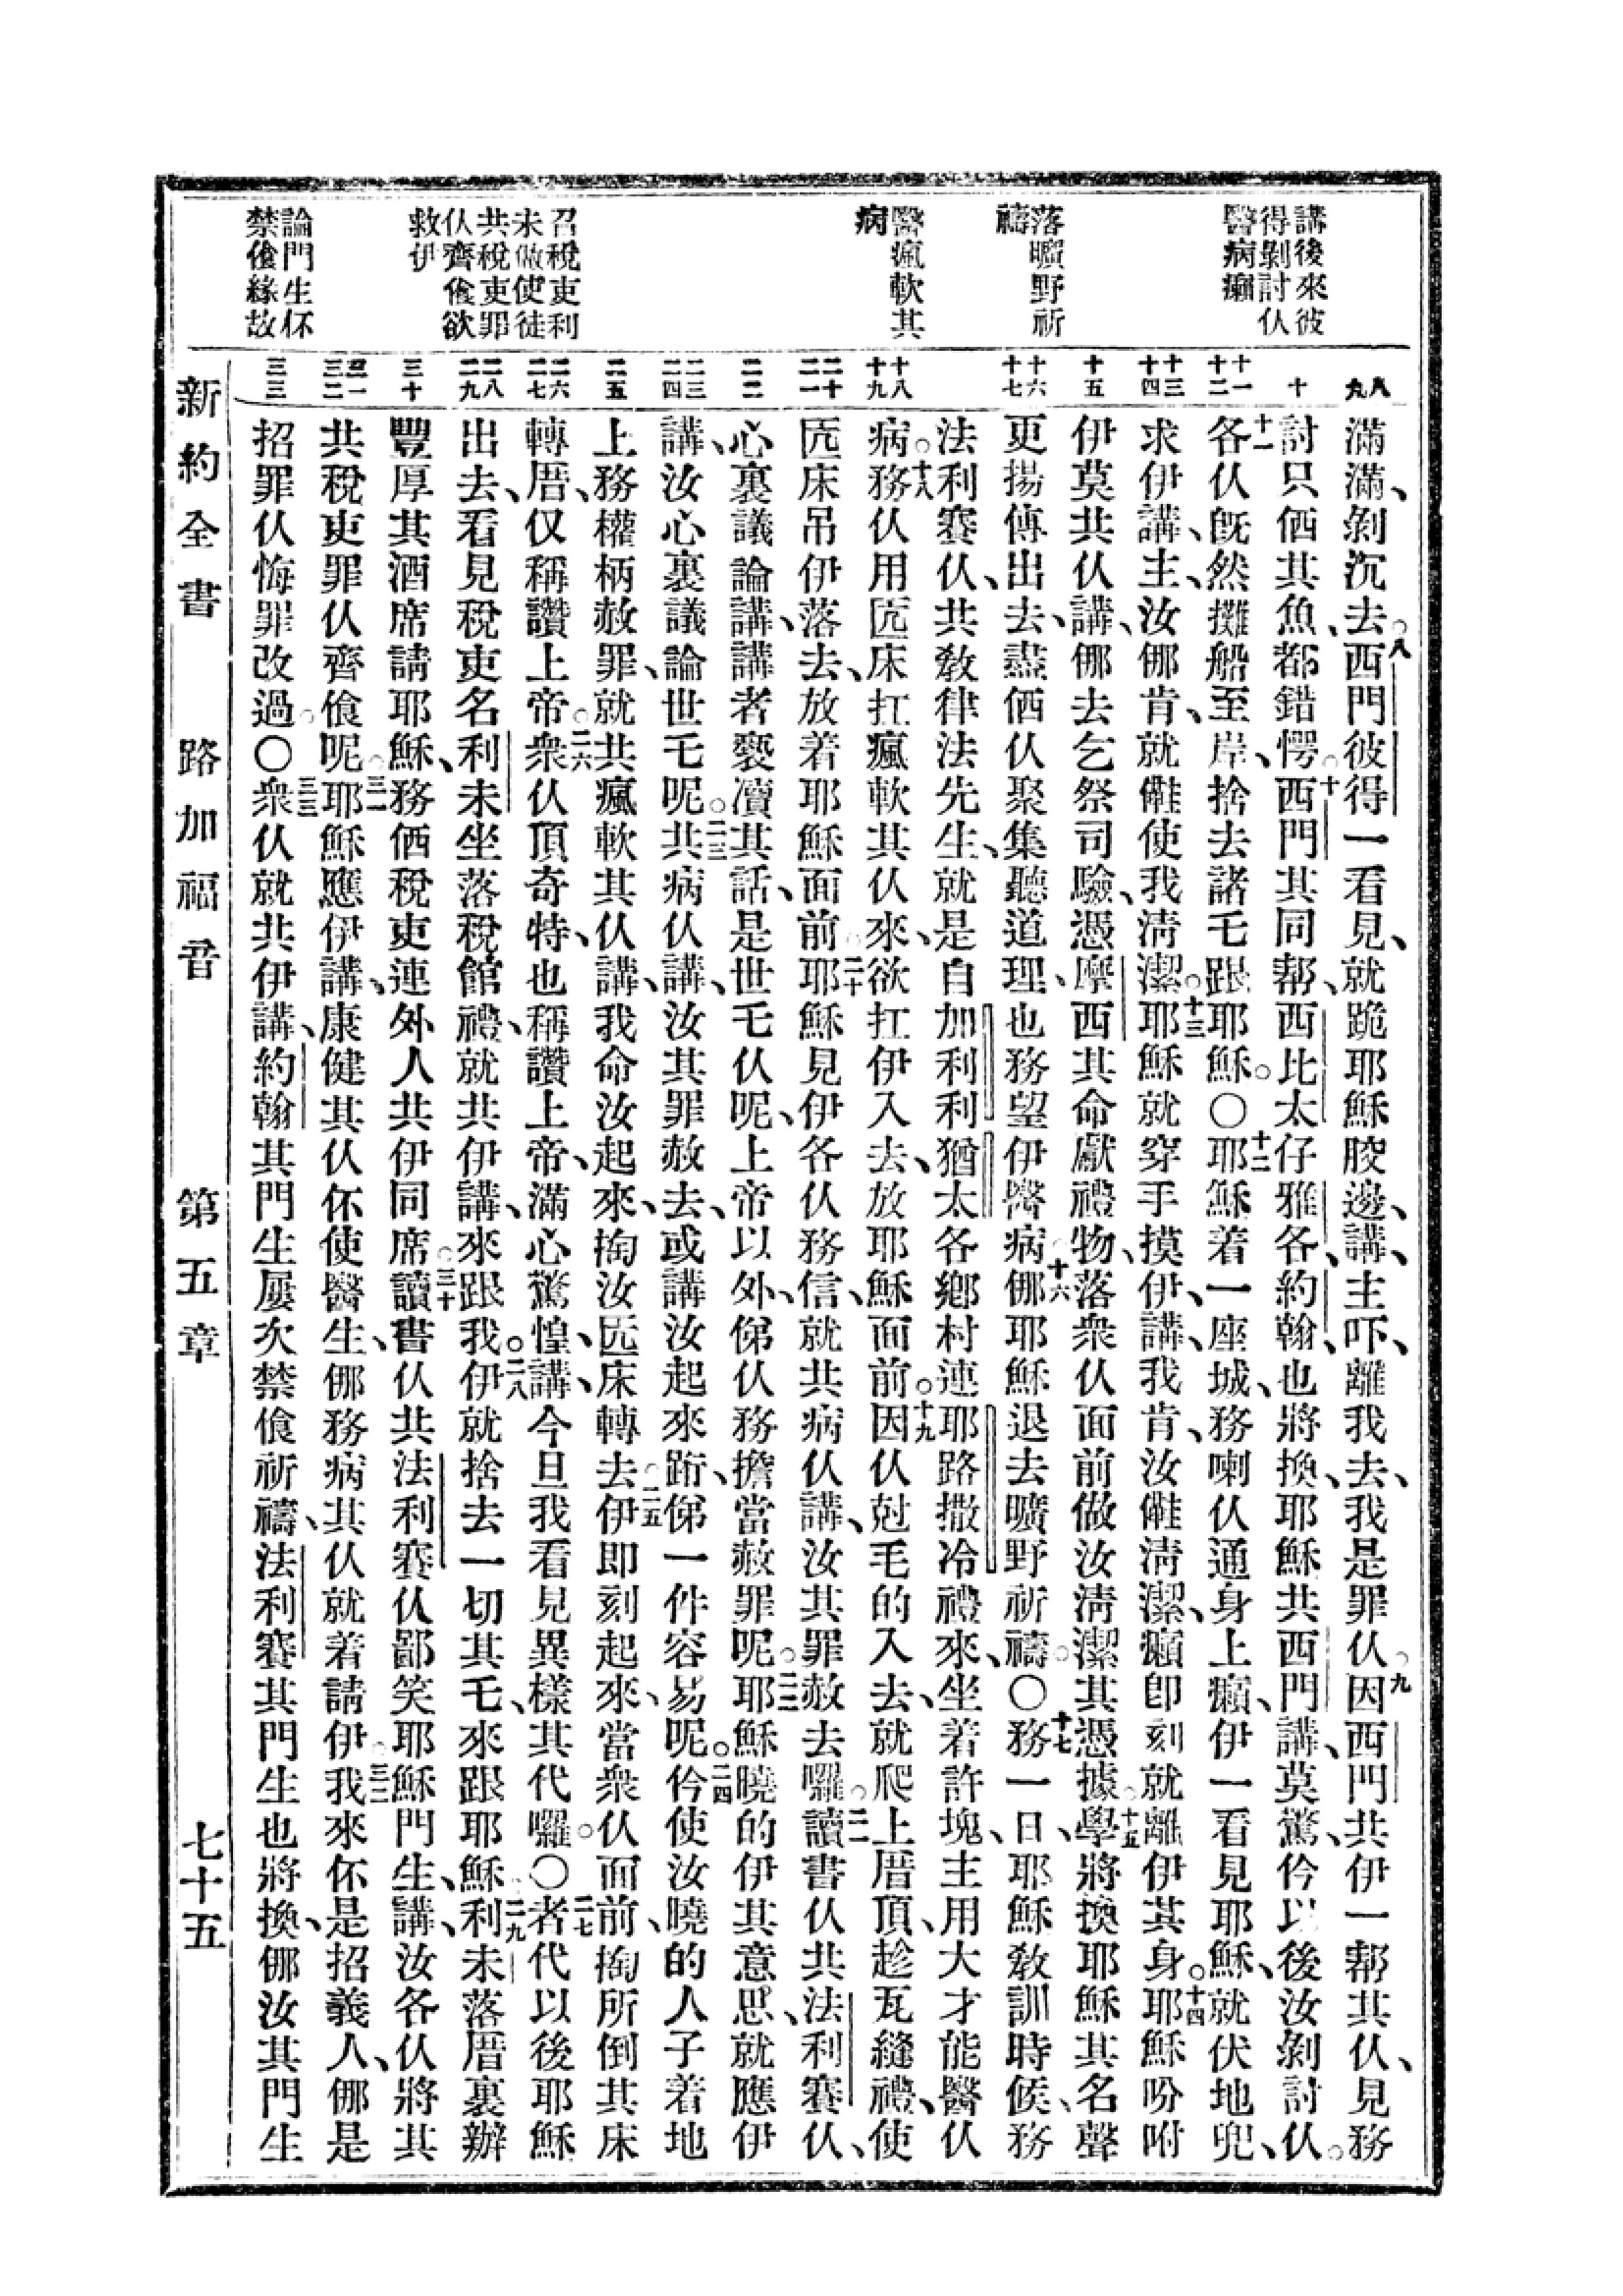 講後來彼
得剝討仸
醫病癩
落曠野祈
禱
醫瘋軟其
病
召稅吏利
未做使徒
共稅吏罪
仸齊傖欲
救伊
論門生伓
禁傖緣故
八
九
十
十一
十二
十三
十四
十五
十六
十七
十八
十九
二十
二一
二二
二三
二四
二五
二六
二七
二八
二九
三十
三一
三二
三三
滿滿、剝沉去。八西門彼得一看見、就跪耶穌骹邊、講、主吓、離我去、我是罪仸。九因西門共伊一幫其仸、見務
討只㑚其魚、都錯愕。十西門其同幫、西比太仔雅各、約翰、也將換、耶穌共西門講、莫驚、仱以後汝剝討仸。
十一各仸旣然攤船至岸、捨去諸乇跟耶穌。〇十二耶穌着一座城、務喇仸通身上癩、伊一看見耶穌、就伏地兜、
求伊講、主、汝㑚肯、就𠆧使我淸潔。十三耶穌就穿手摸伊、講、我肯、汝𠆧淸潔、癩卽刻就離伊其身。十四耶穌吩咐
伊莫共仸講、㑚去乞祭司驗、憑摩西其命獻禮物、落衆仸面前做汝淸潔其憑據。十五學將換耶穌其名聲
更揚傳出去、盡㑚仸聚集聽道理、也務望伊醫病。十六㑚耶穌退去曠野祈禱。〇十七務一日、耶穌敎訓時候、務
法利賽仸、共敎律法先生、就是自加利利猶太各鄕村連耶路撒冷禮來、坐着許塊、主用大才能醫仸
病。十八務仸用匟床扛瘋軟其仸來、欲扛伊入去、放耶穌面前。十九因仸尅毛的入去、就爬上厝頂、趁瓦縫禮、使
匟床吊伊落去、放着耶穌面前。二十耶穌見伊各仸務信、就共病仸講、汝其罪赦去囉。二一讀書仸共法利賽仸、
心裏議論講、講者褻瀆其話、是世乇仸呢、上帝以外、俤仸務擔當赦罪呢。二二耶穌曉的伊其意思、就應伊
講、汝心裏議論世乇呢。二三共病仸講、汝其罪赦去、或講汝起來跡、俤一件容易呢。二四仱使汝曉的人子着地
上務權柄赦罪、就共瘋軟其仸講、我命汝起來、掏汝匟床轉去。二五伊卽刻起來、當衆仸面前、掏所倒其床
轉厝、仅稱讚上帝。二六衆仸頂奇特、也稱讚上帝、滿心驚惶、講、今旦我看見異樣其代囉。〇二七者代以後、耶穌
出去、看見稅吏名利未坐落稅館禮、就共伊講、來跟我。二八伊就捨去一切其乇、來跟耶穌。二九利未落厝裏辦
豐厚其酒席請耶穌、務㑚稅吏連外人共伊同席。三十讀書仸共法利賽仸鄙笑耶穌門生、講、汝各仸將其
共稅吏罪仸齊傖呢。三一耶穌應伊講、康健其仸伓使醫生、㑚務病其仸就着請伊。三二我來伓是招義人、㑚是
招罪仸悔罪改過。〇三三衆仸就共伊講、約翰其門生屢次禁傖祈禱、法利賽其門生也將換、㑚汝其門生
新約全書　路加福音　第五章　七十五